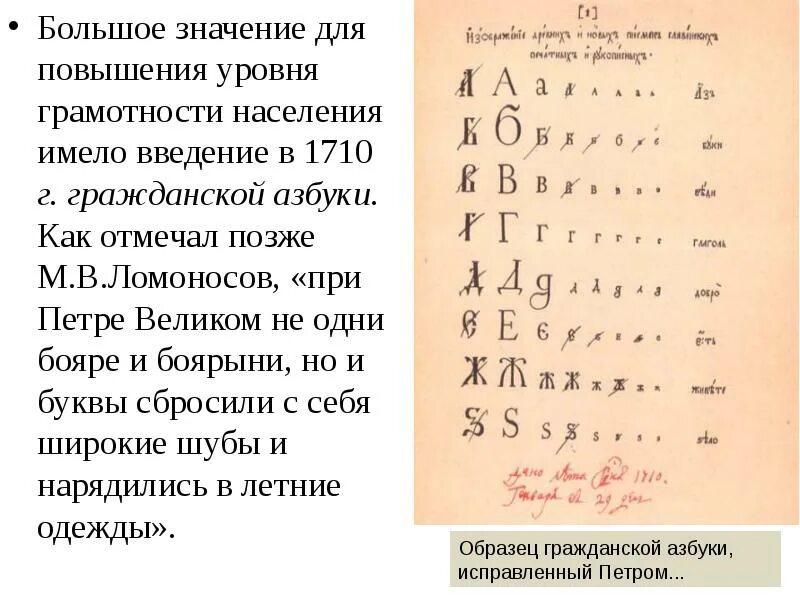 • Большое значение для
повышения уровня
грамотности населения
имело введение в 1710
г. гражданской азбуки.
Как отмечал позже
М.В.Ломоносов, «при
Петре Великом не одни
бояре и боярыни, но и
буквы сбросили с себя
широкие шубы и
нарядились в летние
одежды».
[1]
Изображенїе древнихъ и новыхъ писменъ славенскихъ
печатныхъ и рукописныхъ.
А А а д л л а азъ
Б Б Б б б буки
В В в в в в вѣди
Г Г г г г г глаголь
Д Д д д д д добро
Є Е є е е есть
Ж Ж ж ж ж ж живѣте
Ѕ Ѕ ѕ ѕ ѕ ѕ ѕ ѕѣло
дано лѣта 1710.
Генваря 29 дня
Образец гражданской азбуки,
исправленный Петром...